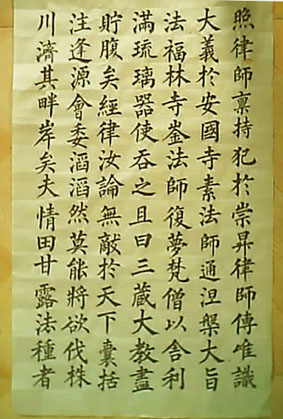 照律師稟持犯於崇昇律師傳唯識
大義於安國寺素法師通涅槃大旨
法福林寺崟法師復夢梵僧以舍利
滿琉璃器使吞之且曰三藏大教盡
貯腹矣經律汝論無敵於天下囊括
注逢源會委滔滔然莫能將欲伐株
川濟其畔岸矣夫情田甘露法種者